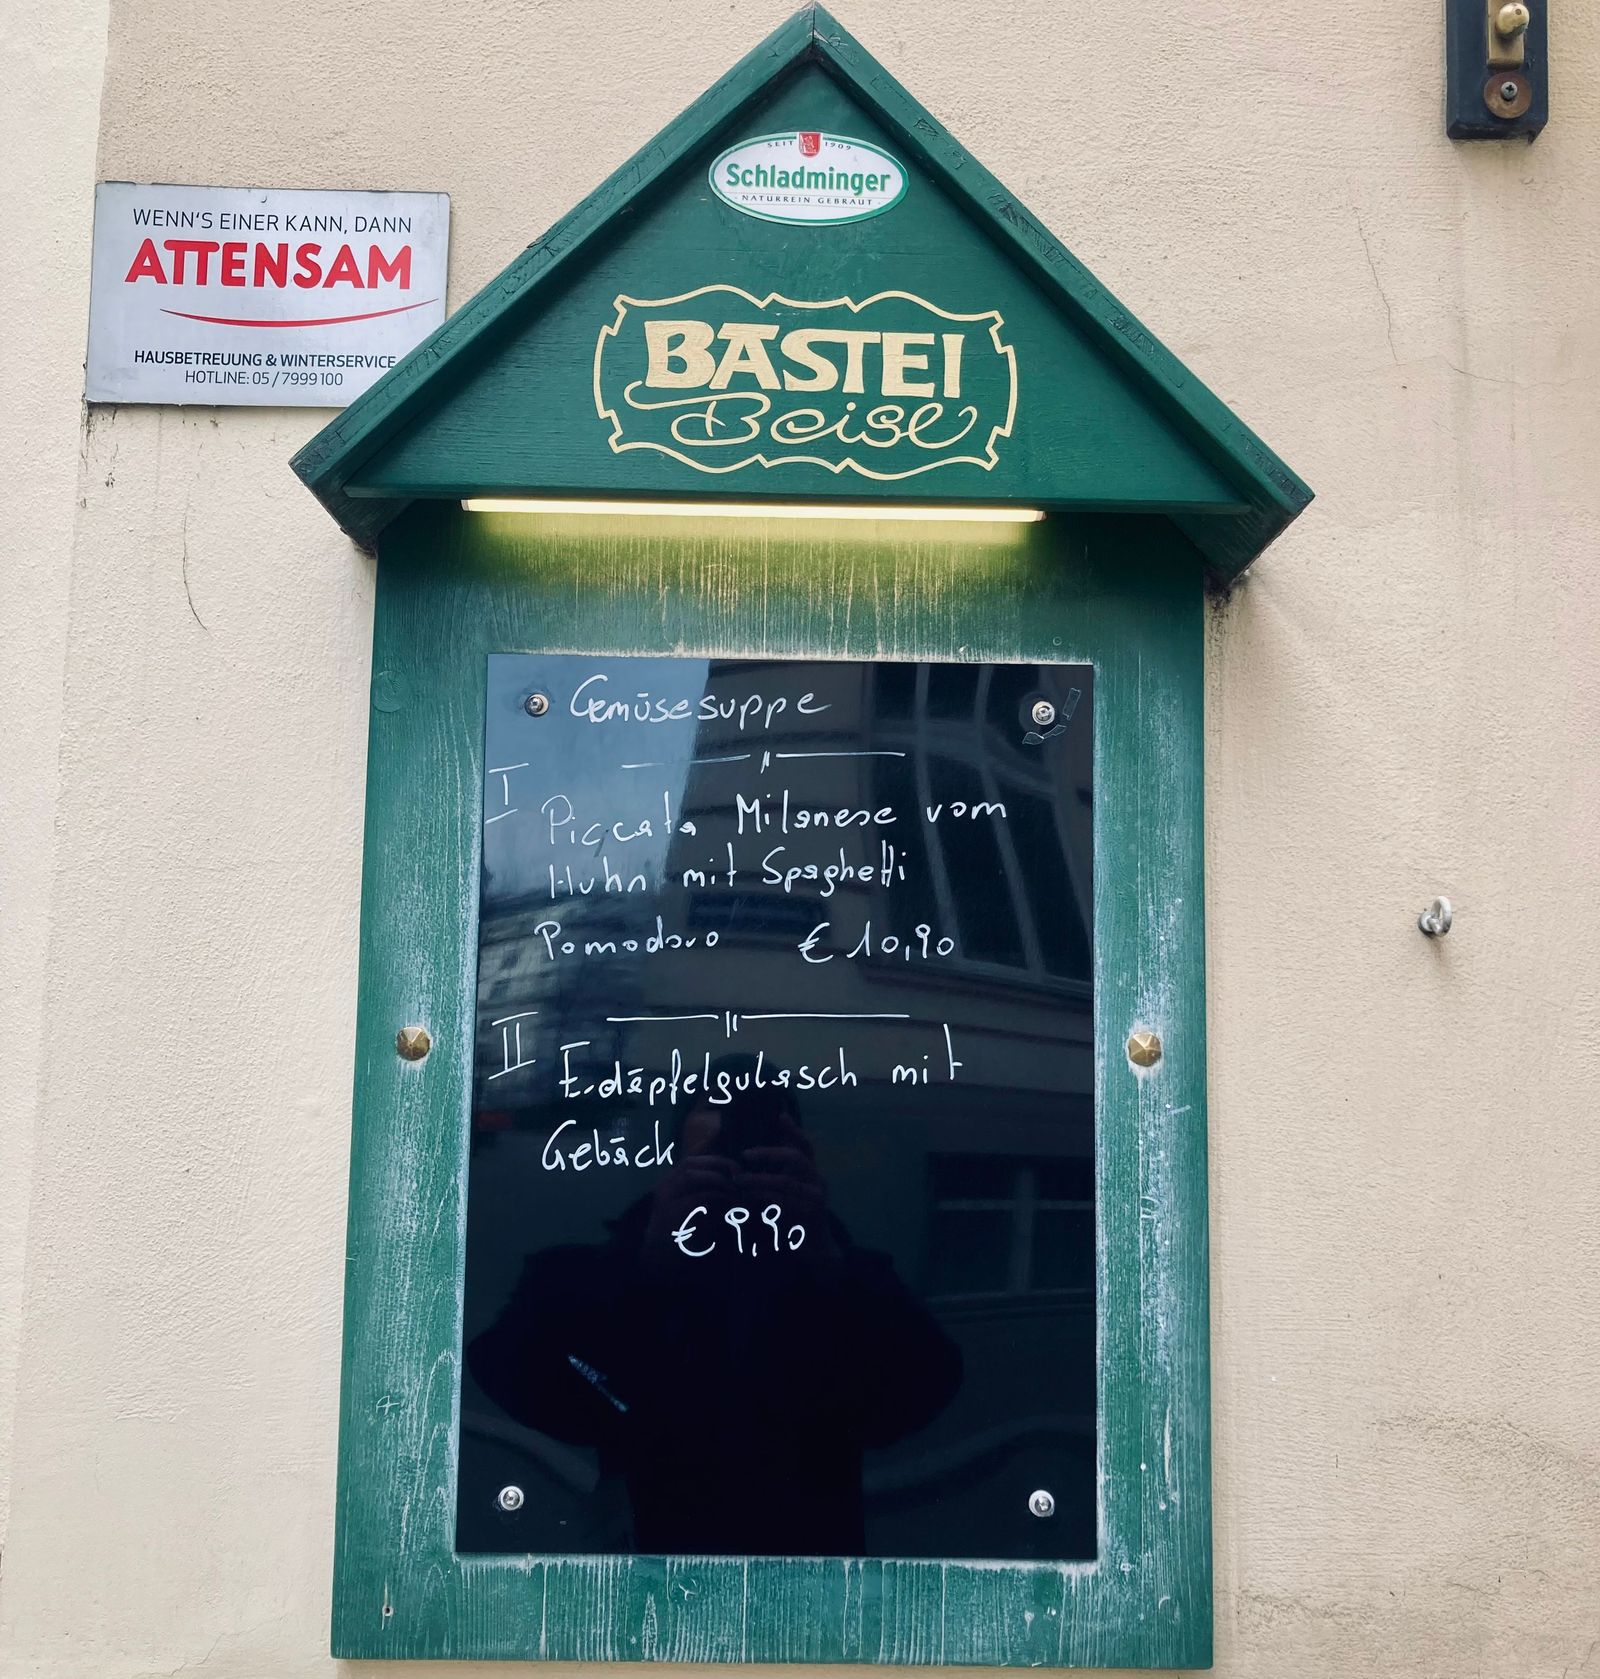 WENN'S EINER KANN, DANN
ATTENSAM
HAUSBETREUUNG & WINTERSERVICE
HOTLINE: 05 / 7999 100
SEIT 1909
Schladminger
NATURREIN GEBRAUT
BASTEI
Beisl
Gemüsesuppe
I
Piccata Milanese vom
Huhn mit Spaghetti
Pomodoro € 10,90
II
Erdäpfelgulasch mit
Gebäck
€ 9,90